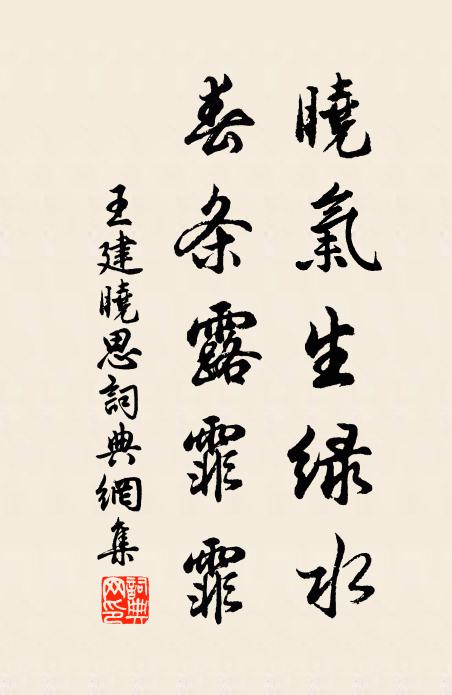 曉氣生綠水
春条露霏霏
王建曉思詞典網集
詞典网印